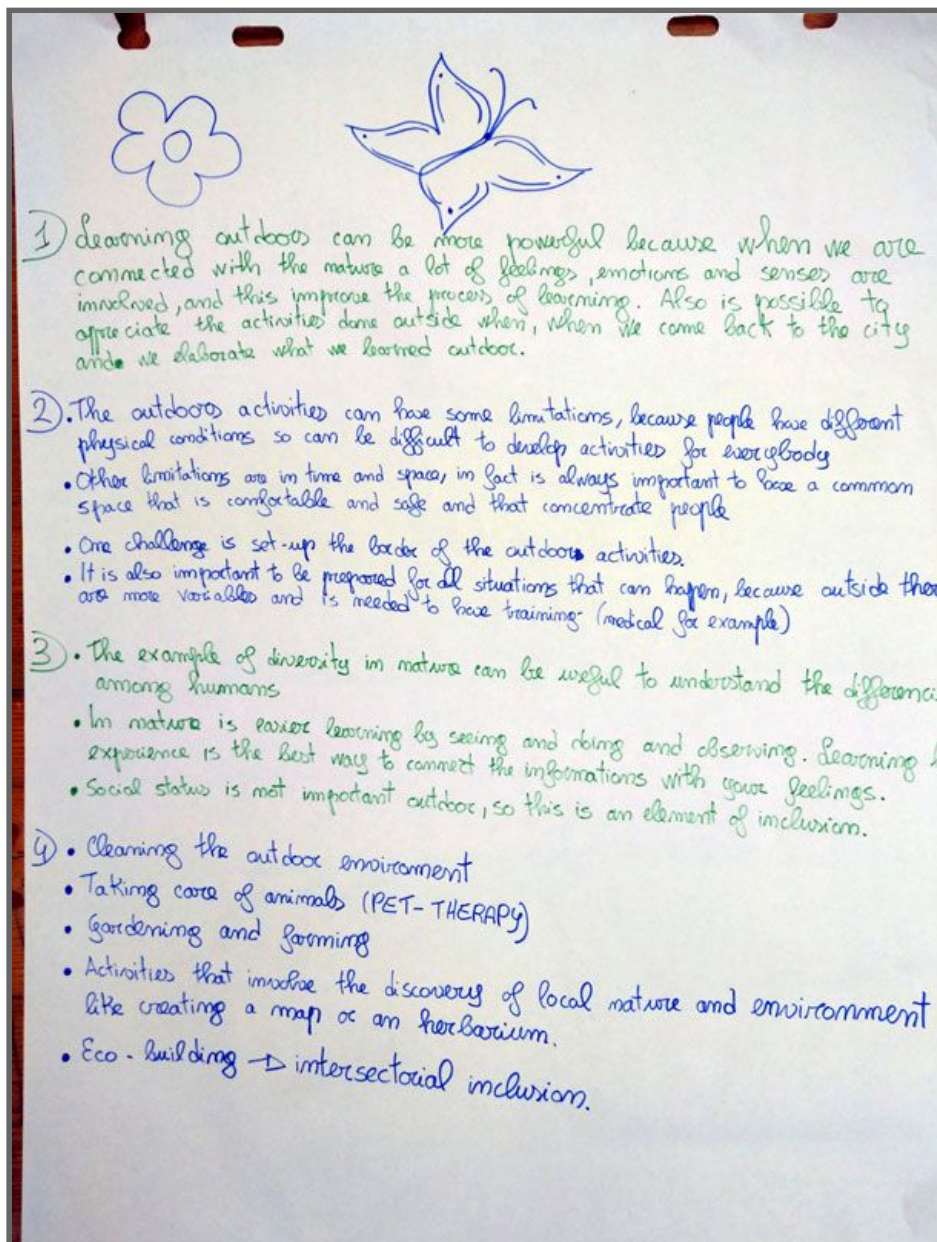 1) Learning outdoors can be more powerful because when we are
connected with the nature a lot of feelings, emotions and senses are
involved, and this improve the process of learning. Also is possible to
appreciate the activities done outside when, when we come back to the city
and we elaborate what we learned outdoor.
2) • The outdoors activities can have some limitations, because people have different
physical conditions so can be difficult to develop activities for everybody
• Other limitations are in time and space, in fact is always important to have a common
space that is comfortable and safe and that concentrate people
• One challenge is set-up the border of the outdoors activities.
• It is also important to be prepared for all situations that can happen, because outside ther
are more variables and is needed to have training (medical for example)
3) • The example of diversity in nature can be useful to understand the differenci
among humans
• In nature is easier learning by seeing and doing and observing. Learning
experience is the best way to connect the informations with your feelings.
• Social status is not important outdoor, so this is an element of inclusion.
4) • Cleaning the outdoor enviroment
• Taking care of animals (PET-THERAPY)
• Gardening and farming
• Activities that involve the discovery of local nature and environment
like creating a map or an herbarium.
• Eco-building → intersectorial inclusion.